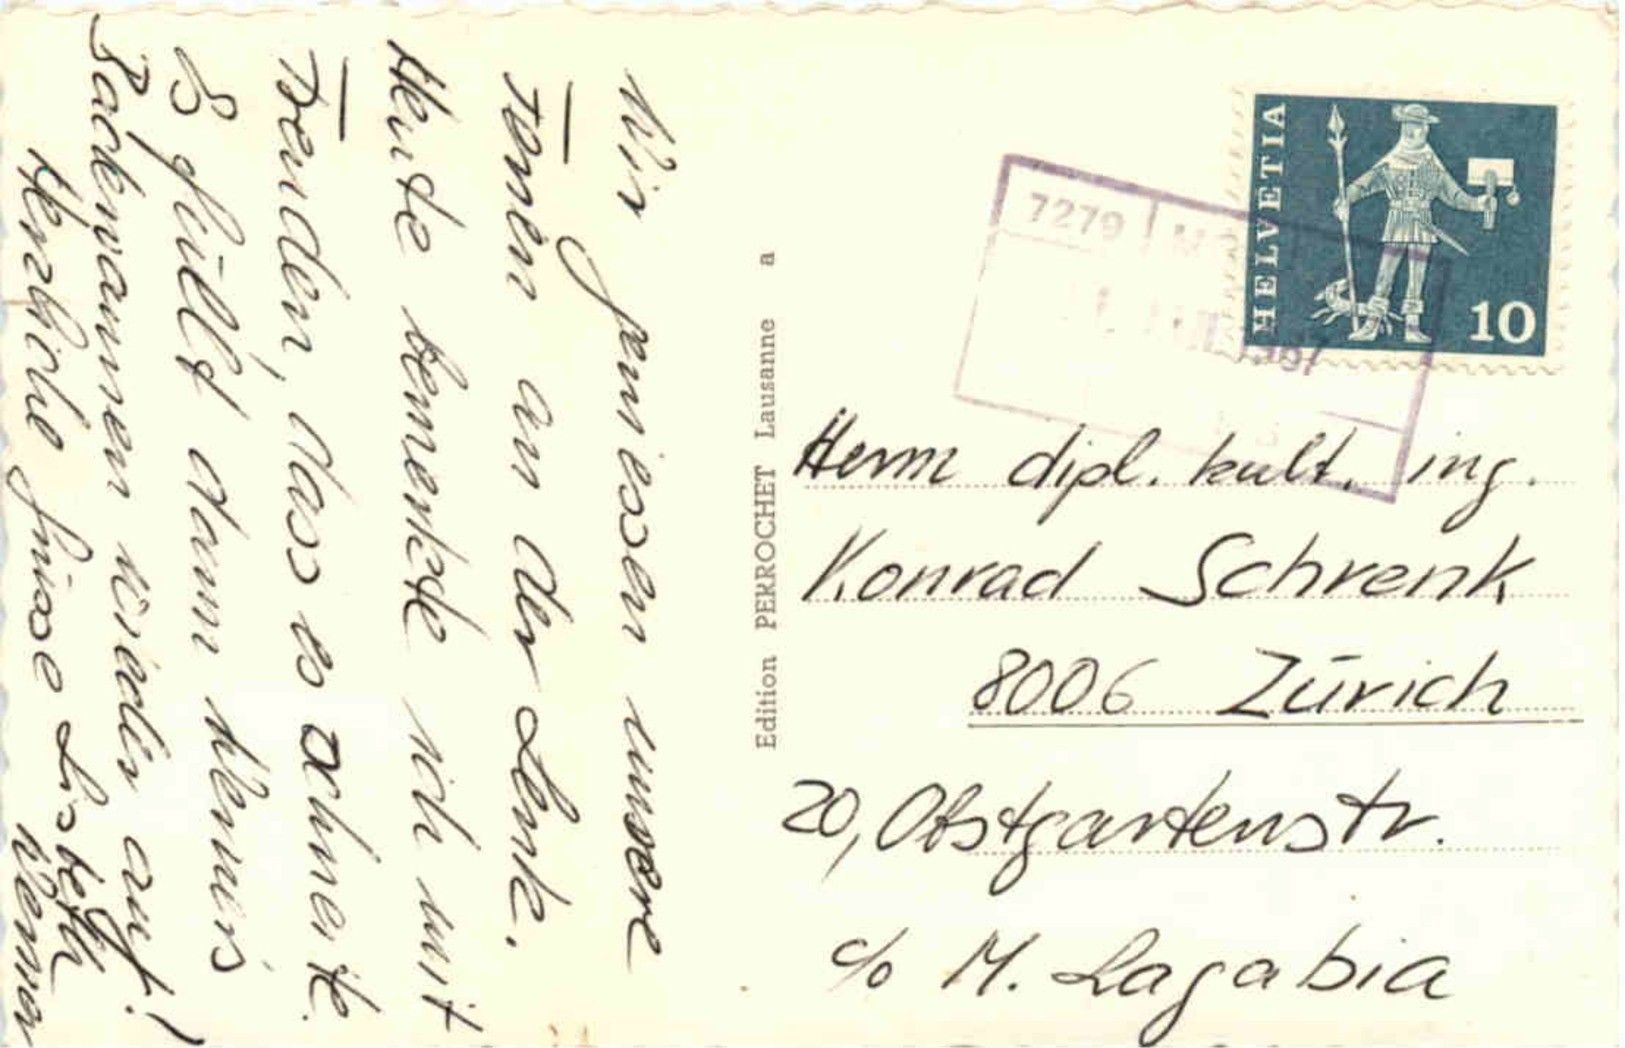 Wir geniessen unsere
Ferien an der Lenk.
Heute bemerkte ich mit
Freuden, dass es schneite.
Es füllt dann Werner's
Backwannen wieder auf!
Herzliche Grüsse Lisbeth
Werner
Edition PERROCHET Lausanne a
HELVETIA
10
7279
Herrn dipl. kult. ing.
Konrad Schrenk
8006 Zürich
20, Obstgartenstr.
c/o M. Lagabia